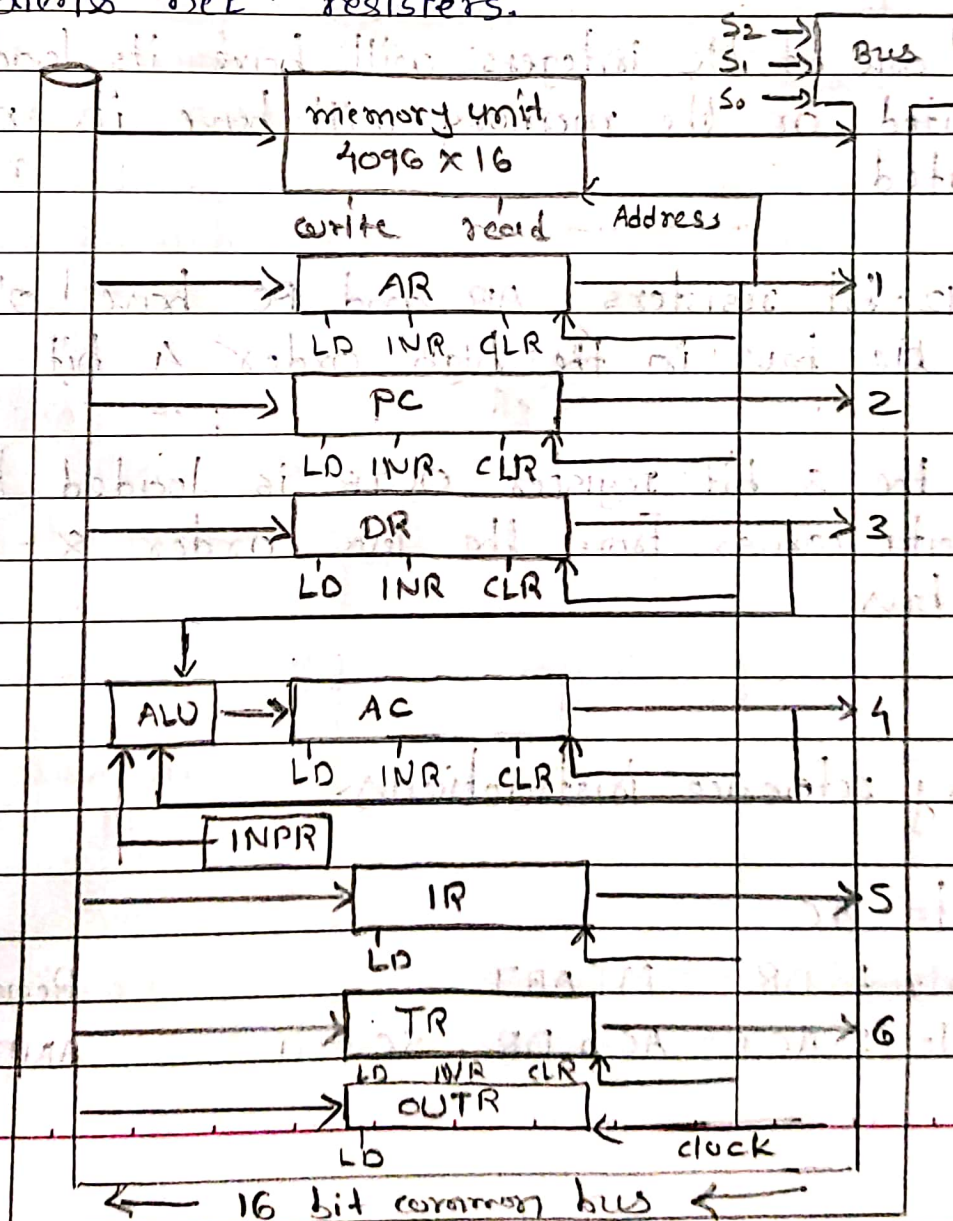 registers.
S2
S1
S0
Bus
memory unit
4096 x 16
write read Address
AR 1
LD INR CLR
PC 2
LD INR CLR
DR 3
LD INR CLR
ALU AC 4
LD INR CLR
INPR
IR 5
LD
TR 6
LD INR CLR
OUTR
LD clock
16 bit common bus